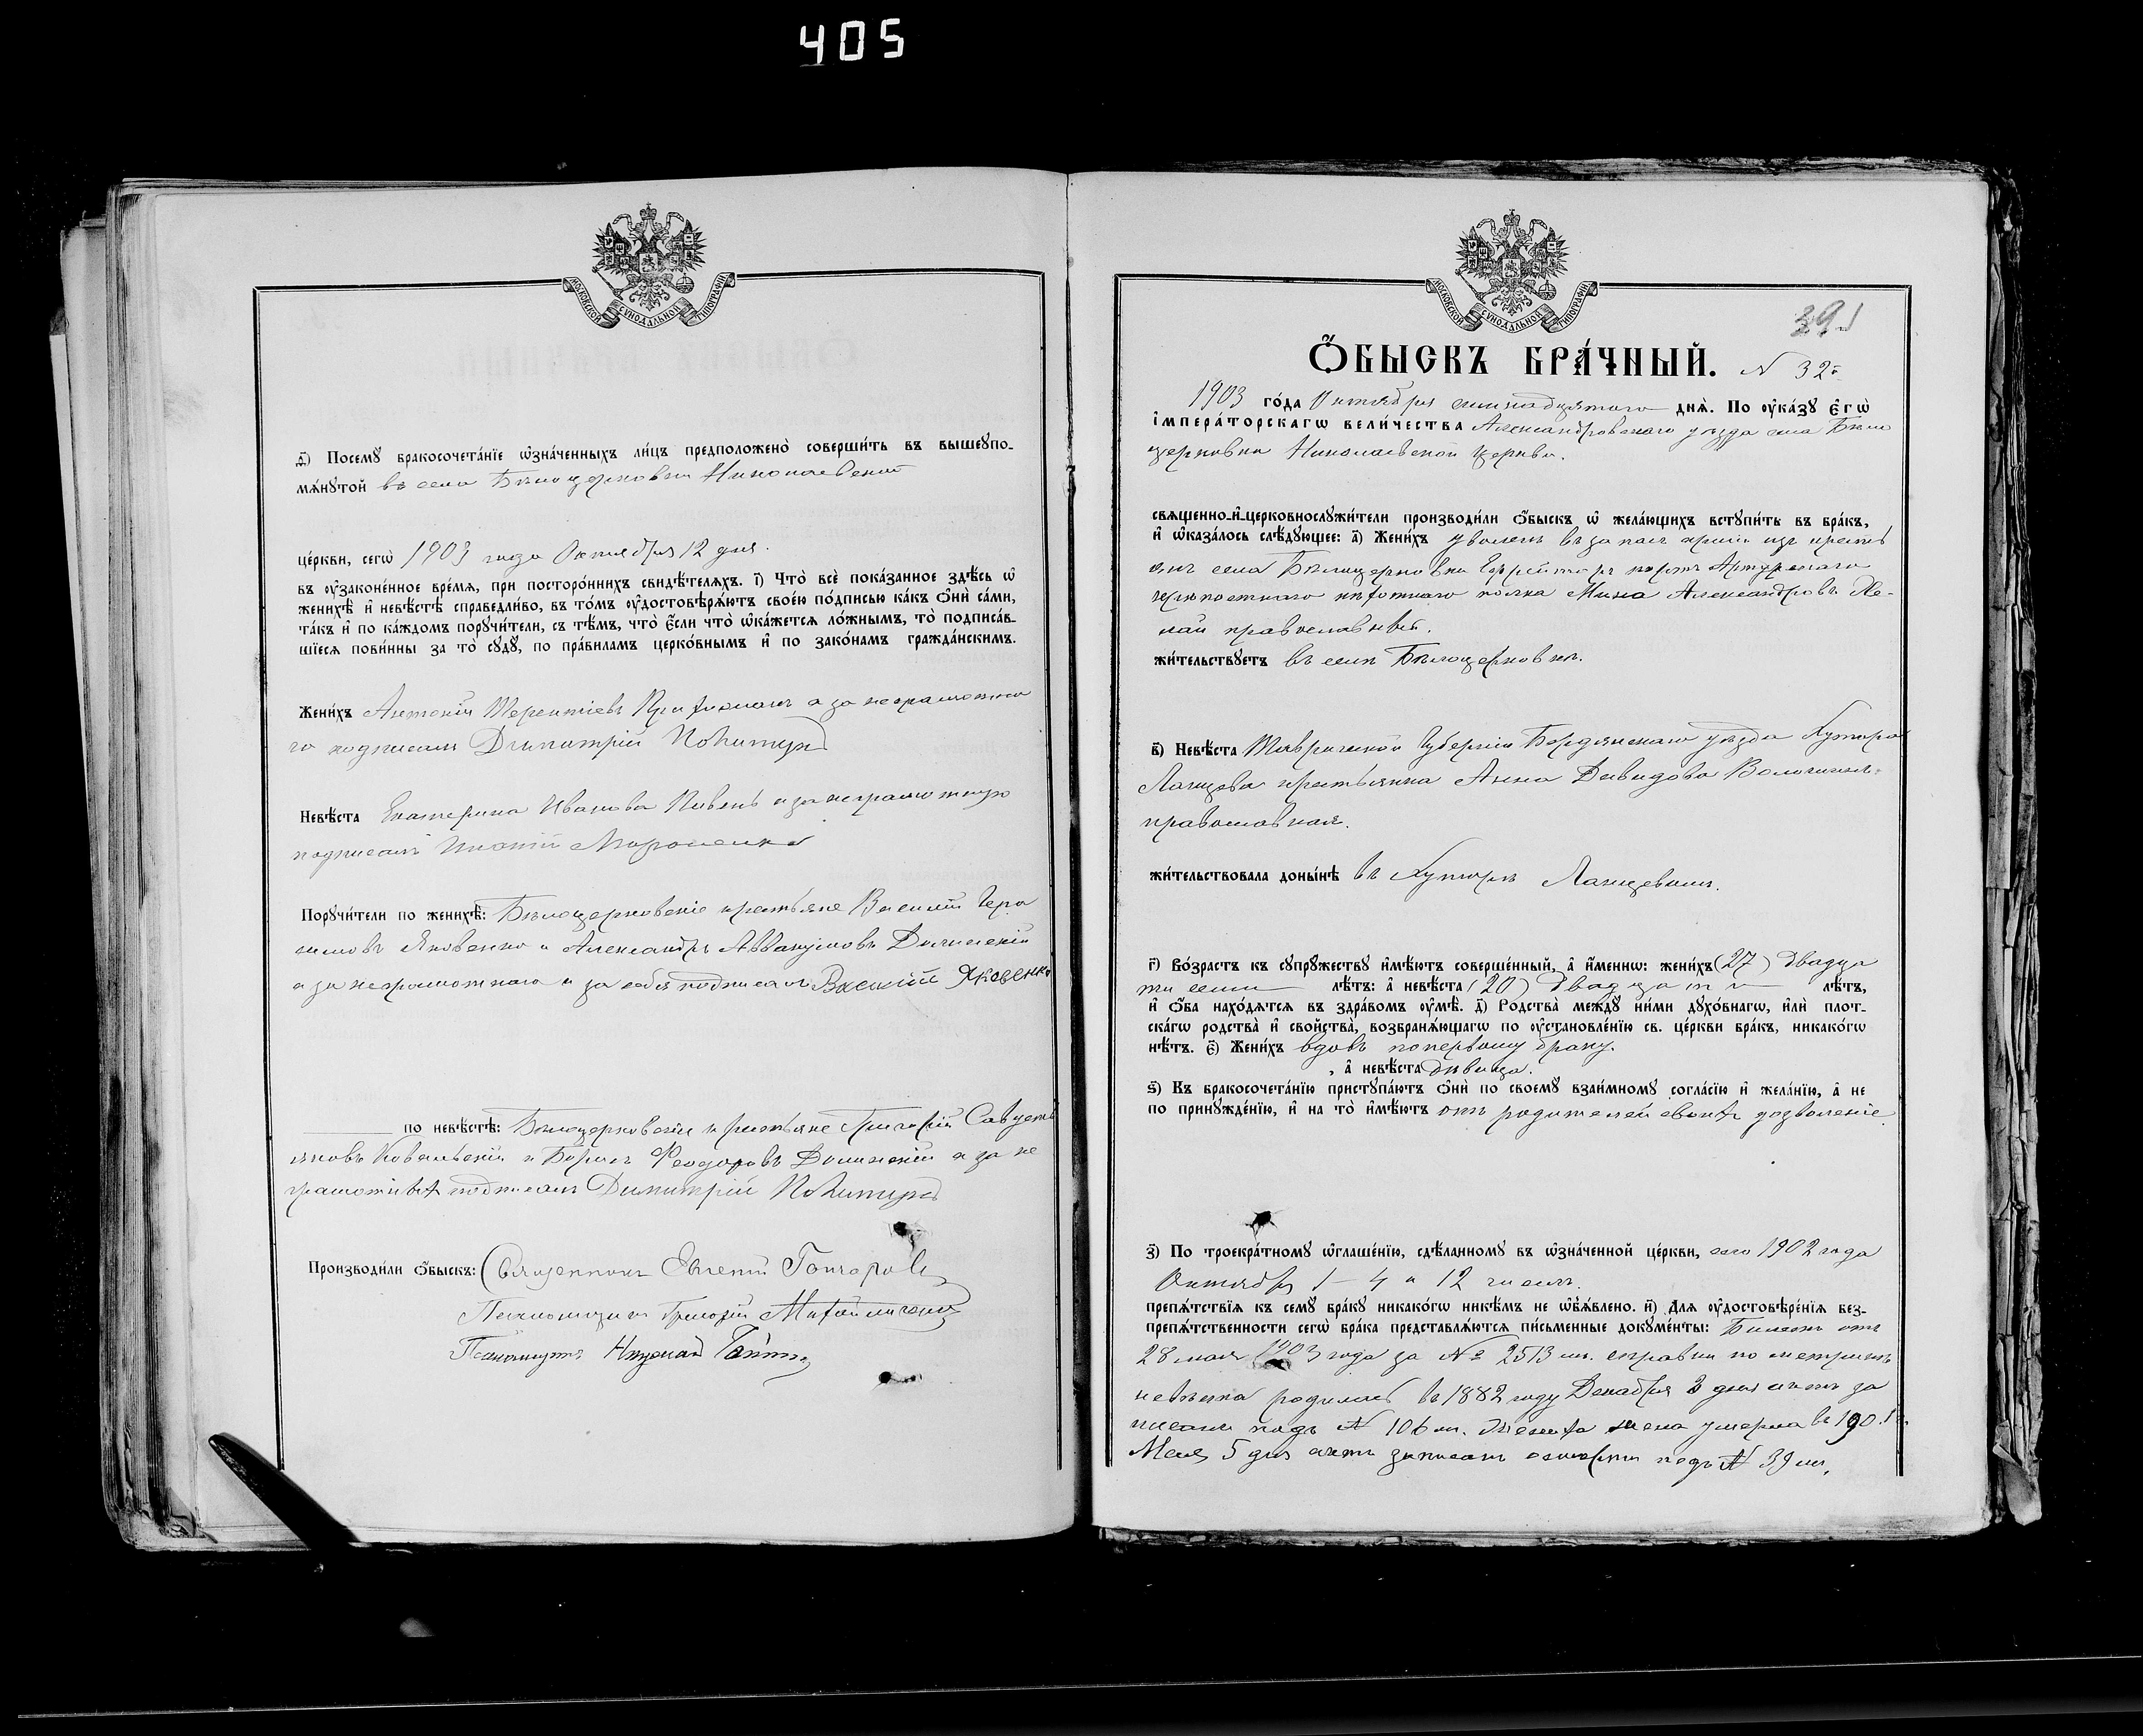 405
МОСКОВСКОЙ СѴНОДАЛЬНОЙ ТИПОГРАФІИ
Посемꙋ бракосочета́нїе ѡ҆зна́ченныхъ ли́цъ предположено̀ соверши́ть въ вышеупо-
мѧ́нꙋтой въ селѣ Бѣлоцерковки Николаевской
це́ркви, сегѡ̀ 1903 года Октября 12 дня.
въ ᲂу҆зако́ненное вре́мѧ, при посторо́ннихъ свидѣ́телѧхъ. і҃) Что̀ всѐ пока́занное здѣ́сь ѡ҆
женихѣ̀ и҆ невѣ́стѣ справедли́во, въ то́мъ ᲂу҆достовѣрѧ́ютъ свое́ю по́дписью ка́къ ѻ҆нѝ са́ми,
та́къ и҆ по ка́ждомъ порꙋчи́тели, съ тѣ́мъ, что̀ є҆́сли что̀ ѡ҆ка́жетсѧ ло́жнымъ, то̀ подписа́в-
шїесѧ пови́нны за то̀ сꙋдꙋ̀, по пра́виламъ церко́внымъ и҆ по зако́намъ гражда́нскимъ.
Жени́хъ Антоній Терентіевъ а за неграмотна
го подписалъ Димитрій
Невѣ́ста Екатерина Иванова Пивень а за неграмотную
подписалъ Мироненко
Порꙋчи́тели по женихѣ̀: Бѣлоцерковскіе крестьяне Василій Гера
симовъ Яковенко и Александръ Аввакумовъ Долинскій
а за неграмотнаго и за себя подписалъ Василій Яковенко
по невѣ́стѣ: Бѣлоцерковскіе крестьяне Григорій Савусть
яновъ Ковальскій и Борисъ Феодоровъ Долинскій а за не
грамотныхъ подписалъ Димитрій
Производи́ли ѻ҆́быскъ: Священникъ Евгеній Гончаровъ
Псаломщикъ Григорій
Псаломщикъ
МОСКОВСКОЙ СѴНОДАЛЬНОЙ ТИПОГРАФІИ
391
Ѻ҆́БЫСКЪ БРА́ЧНЫЙ. N 32й
1903 го́да Октября двѣнадцатаго днѧ̀. По ᲂу҆ка́зꙋ є҆гѡ̀
і҆мпера́торскагѡ вели́чества Александровскаго уѣзда села Бѣло
церковки Николаевской церкви.
свѧщенно-и҆-церковнослꙋжи́тели производи́ли ѻ҆́быскъ ѡ҆ жела́ющихъ встꙋпи́ть въ бра́къ,
и҆ ѡ҆каза́лось слѣ́дꙋющее: а҃) Жени́хъ уволен въ запасъ арміи изъ крестья
янъ села Бѣлоцерковки Ефрейторъ портъ Артурскаго
крѣпостнаго пѣхотнаго полка Мина Александровъ Не-
православный.
жи́тельствꙋетъ въ селѣ Бѣлоцерковкѣ.
в҃) Невѣ́ста Таврической Губерніи Бердянскаго уѣзда Хутора
Ланцева крестьянка Анна Давидова
православная.
жи́тельствовала доны́нѣ въ Хуторѣ Ланцевомъ.
г҃) Во́зрастъ къ сꙋпрꙋ́жествꙋ и҆мѣ́ютъ соверше́нный, а҆ и҆́менно: жени́хъ (27) двадца
ти семи лѣ́тъ: а҆ невѣ́ста (20) двадцати лѣ́тъ,
и҆ ѻ҆́ба нахо́дѧтсѧ въ здра́вомъ ᲂу҆мѣ̀. д҃) Родства̀ междꙋ ни́ми дꙋхо́внагѡ, и҆лѝ плот-
ска́гѡ родства̀ и҆ сво́йства̀, возбранѧ́ющагѡ по ᲂу҆становле́нїю св. це́ркви бра́къ, никако́гѡ
нѣ́тъ. є҃) Жени́хъ вдовъ по первому браку.
, а҆ невѣ́ста дѣвица.
ѕ҃) Къ бракосочета́нїю пристꙋпа́ютъ ѻ҆нѝ по своемꙋ̀ взаи́мномꙋ согла́сїю и҆ жела́нїю, а҆ не
по принꙋжде́нїю, и҆ на то̀ и҆мѣ́ютъ отъ родителей своихъ дозволеніе.
з҃) По троекра́тномꙋ ѡ҆глаше́нїю, сдѣ́ланномꙋ въ ѡ҆зна́ченной це́ркви, сего 1902 года
Октября 1 – 4 и 12 чиселъ.
препѧ́тствїѧ къ семꙋ̀ бра́кꙋ никако́гѡ никѣ́мъ не ѡ҆б̾ѧ́влено. и҃) Длѧ ᲂу҆достовѣре́нїѧ без-
препѧ́тственности сегѡ̀ бра́ка представлѧ́ютсѧ пи́сьменные докꙋме́нты: Билетъ отъ
28 мая 1903 года за № 2513 м. справки по метрикѣ
невѣста родилась въ 1882 году Декабря 3 дня актъ за
писанъ подъ N 106 м. Жениха жена умерла въ 190.
Мая 5 дня актъ записанъ о смерти подъ N 39 м.